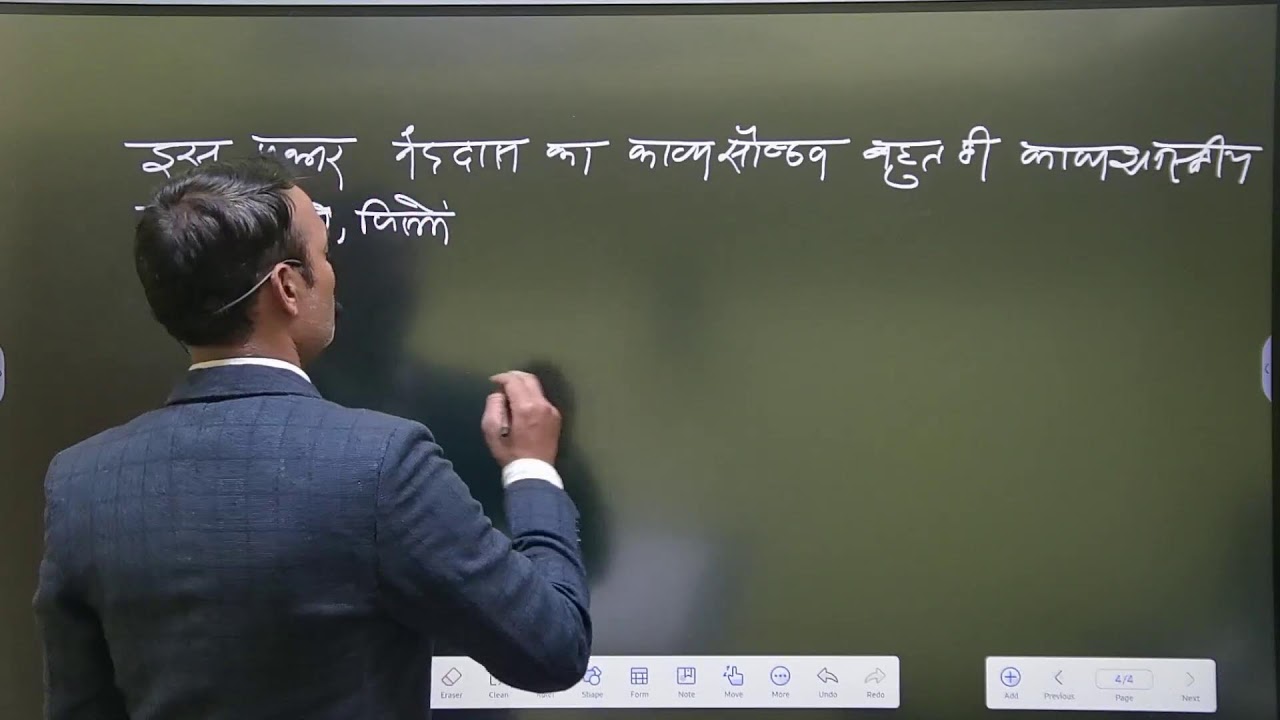 इस प्रकार नंददास का काव्य सौष्ठव बहुत ही काव्यशास्त्रीय
, जिसमें
Eraser Clean Shape Form Note Move More Undo Redo
Add Previous 4/4 Page Next